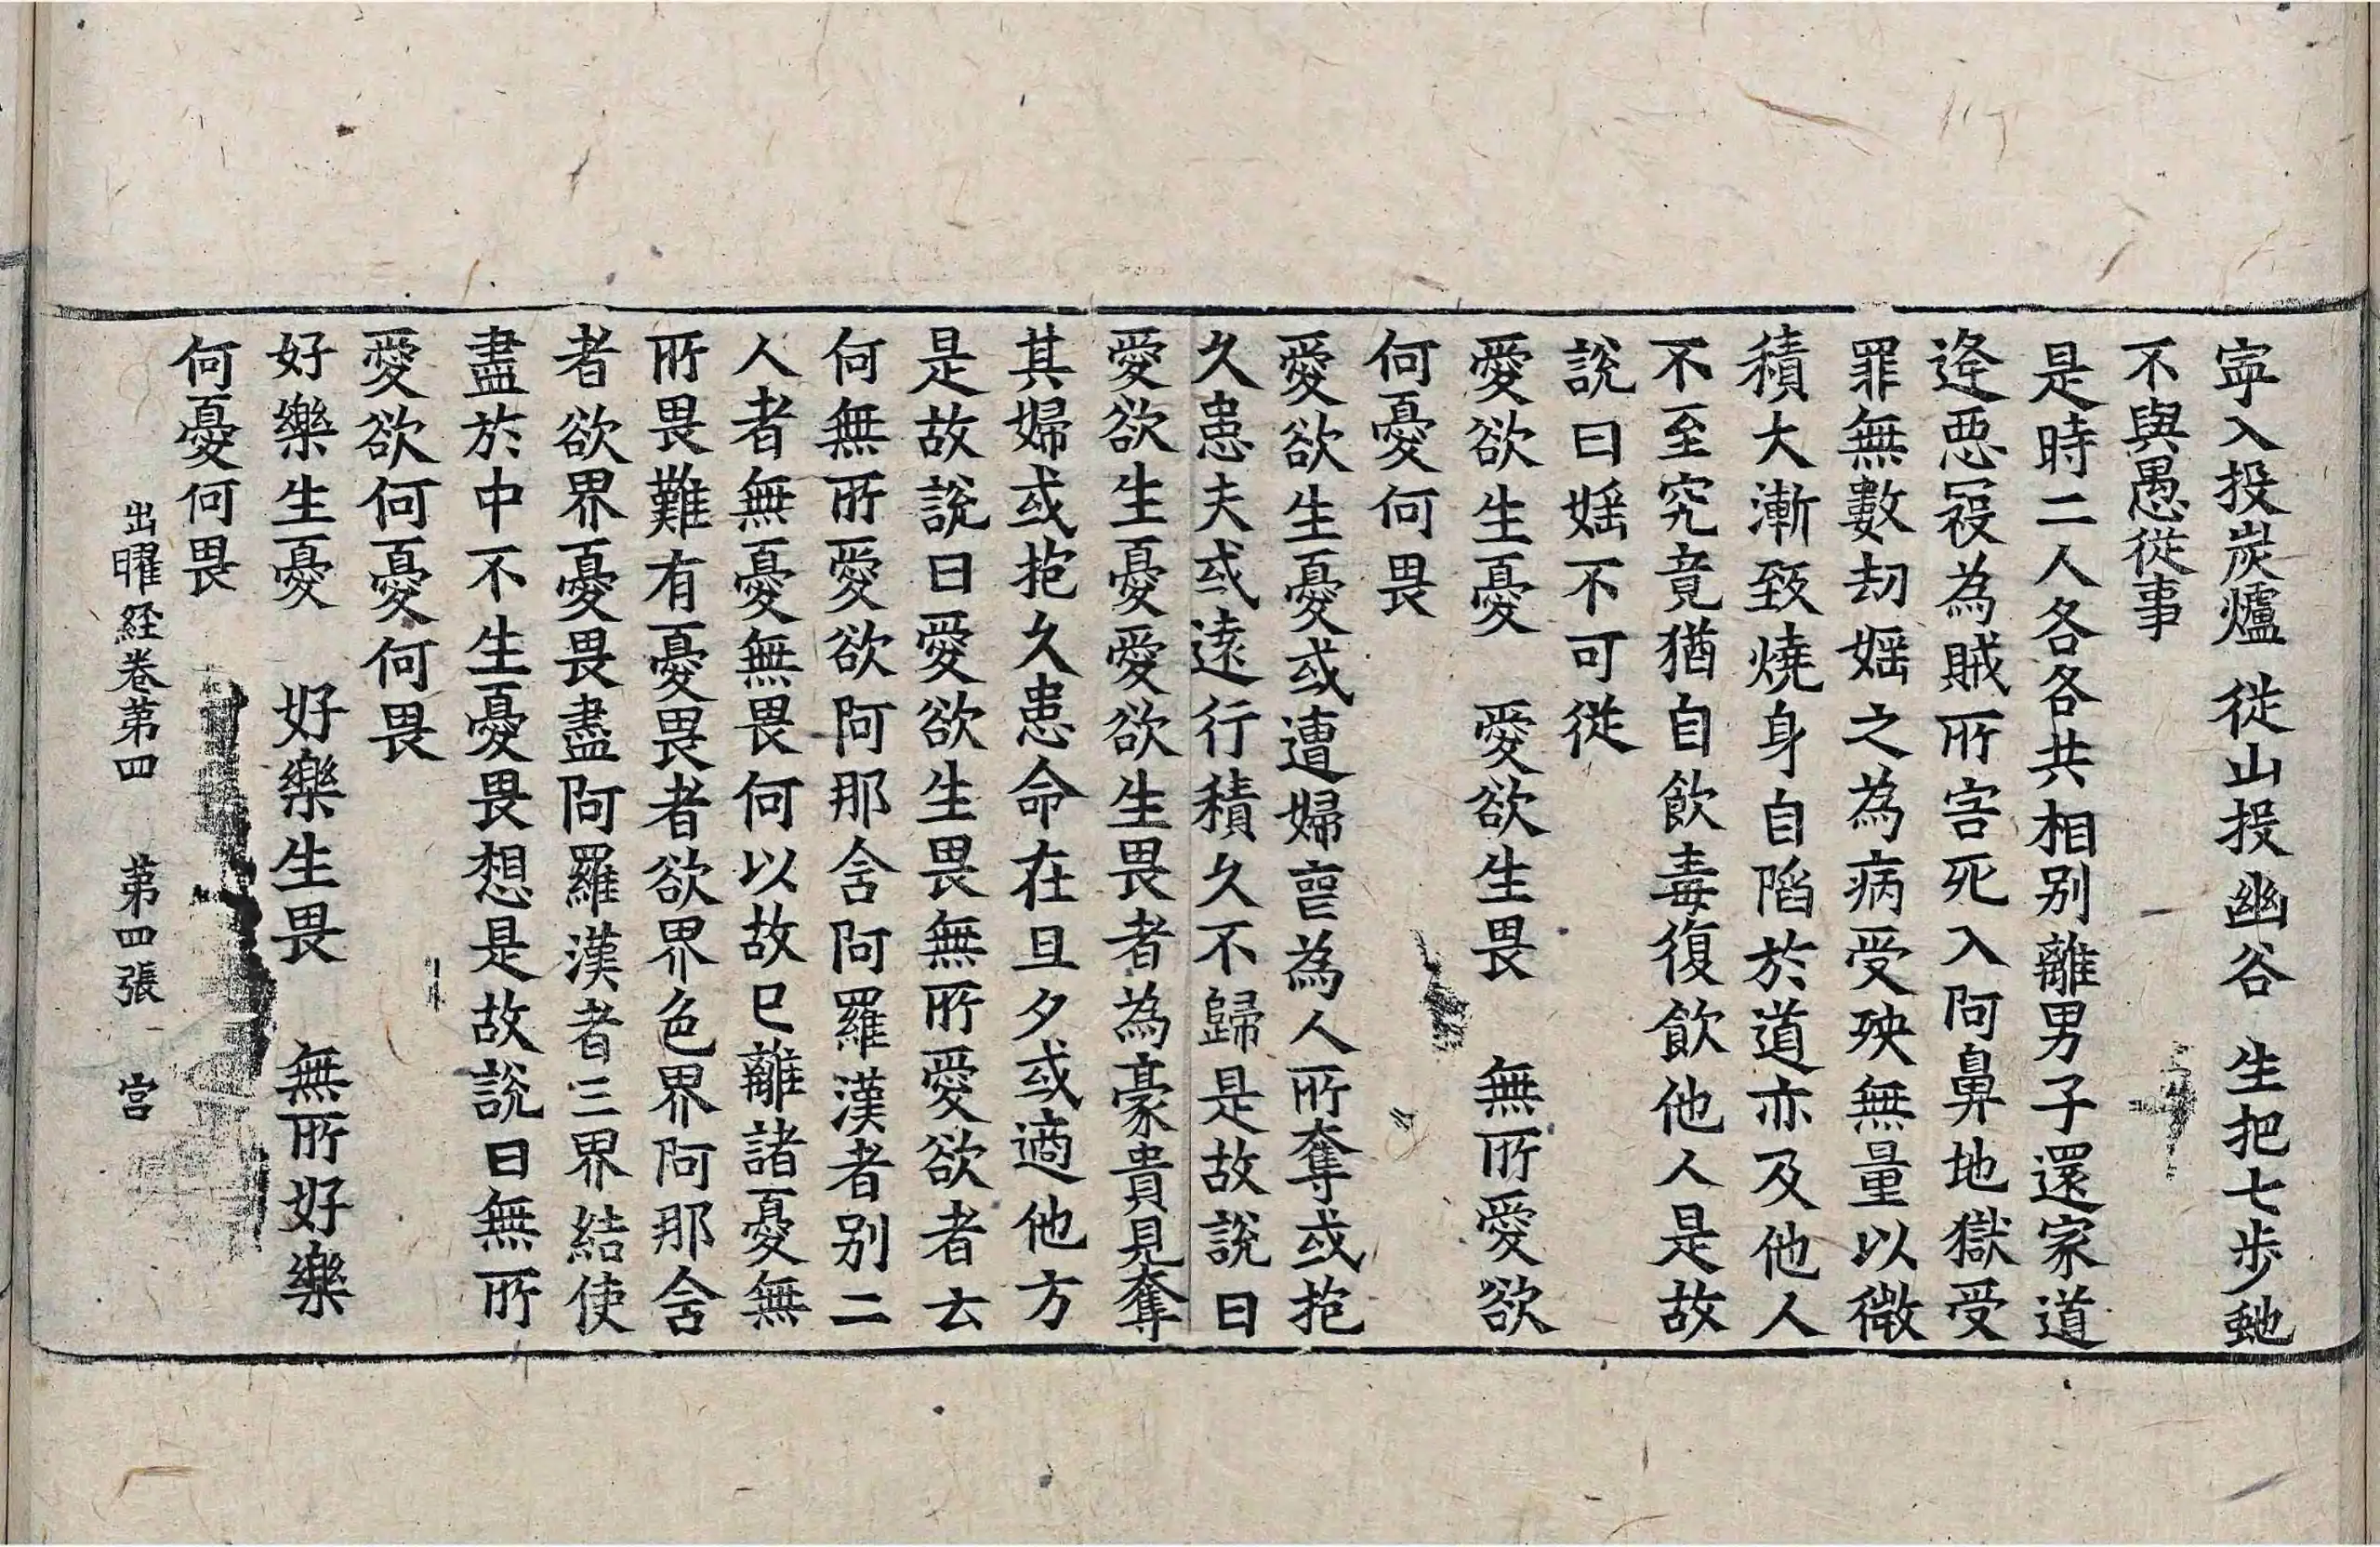 寧入投炭爐　從山投幽谷　生把七步虵
不與愚從事
是時二人各各共相別離男子還家道
逢惡𡨥為賊所害死入阿鼻地獄受
罪無數劫婬之為病受殃無量以微
積大漸致燒身自陷於道亦及他人
不至究竟猶自飲毒復飲他人是故
說曰婬不可從
愛欲生憂　愛欲生畏　無所愛欲
何憂何畏
愛欲生憂或遭婦喪為人所奪或抱
久患夫或遠行積久不歸是故說曰
愛欲生憂愛欲生畏者為豪貴見奪
其婦或抱久患命在旦夕或適他方
是故說曰愛欲生畏無所愛欲者云
何無所愛欲阿那含阿羅漢者別二
人者無憂無畏何以故已離諸憂無
所畏難有憂畏者欲界色界阿那含
者欲界憂畏盡阿羅漢者三界結使
盡於中不生憂畏想是故說曰無所
愛欲何憂何畏
好樂生憂　好樂生畏　無所好樂
何憂何畏
出曜經卷第四　第四張　宮